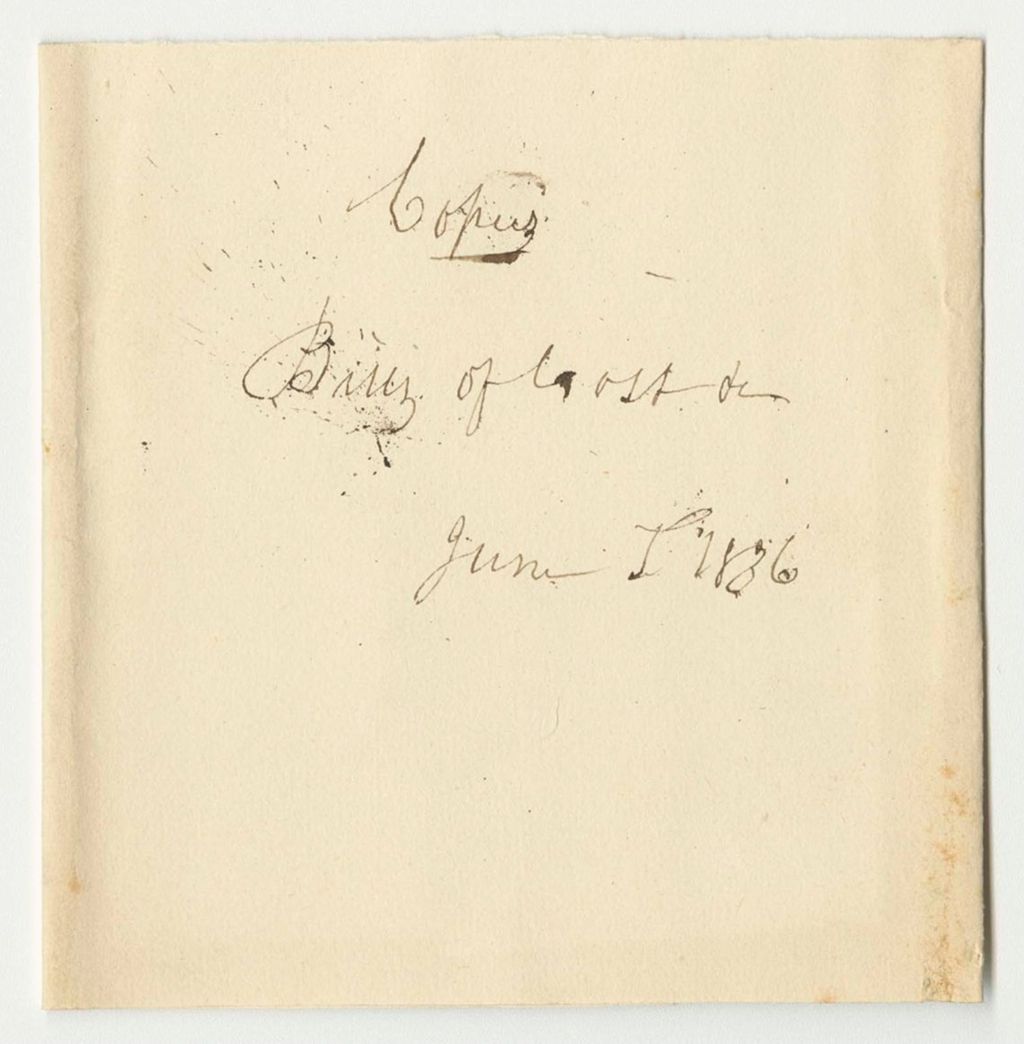 Copies
Bills of Cost &c
June T 1836